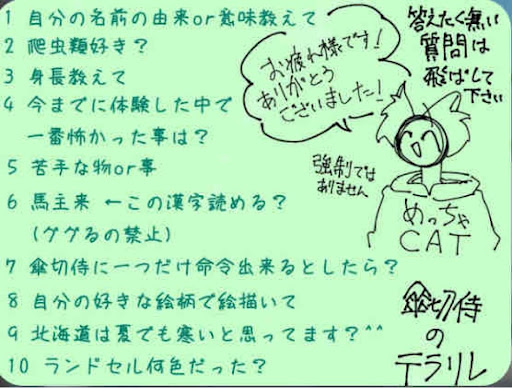 1 自分の名前の由来or意味教えて
2 爬虫類好き？
3 身長教えて
4 今までに体験した中で
一番怖かった事は？
5 苦手な物or事
6 馬主来 ←この漢字読める？
(ググるの禁止)
7 傘切侍に一つだけ命令出来るとしたら？
8 自分の好きな絵柄で絵描いて
9 北海道は夏でも寒いと思ってます？^^
10 ランドセル何色だった？
お疲れ様です！
ありがとう
ございました！
答えたく無い
質問は
飛ばして
下さい
強制では
ありません
めっちゃ
CAT
傘切侍
の
テラリレ